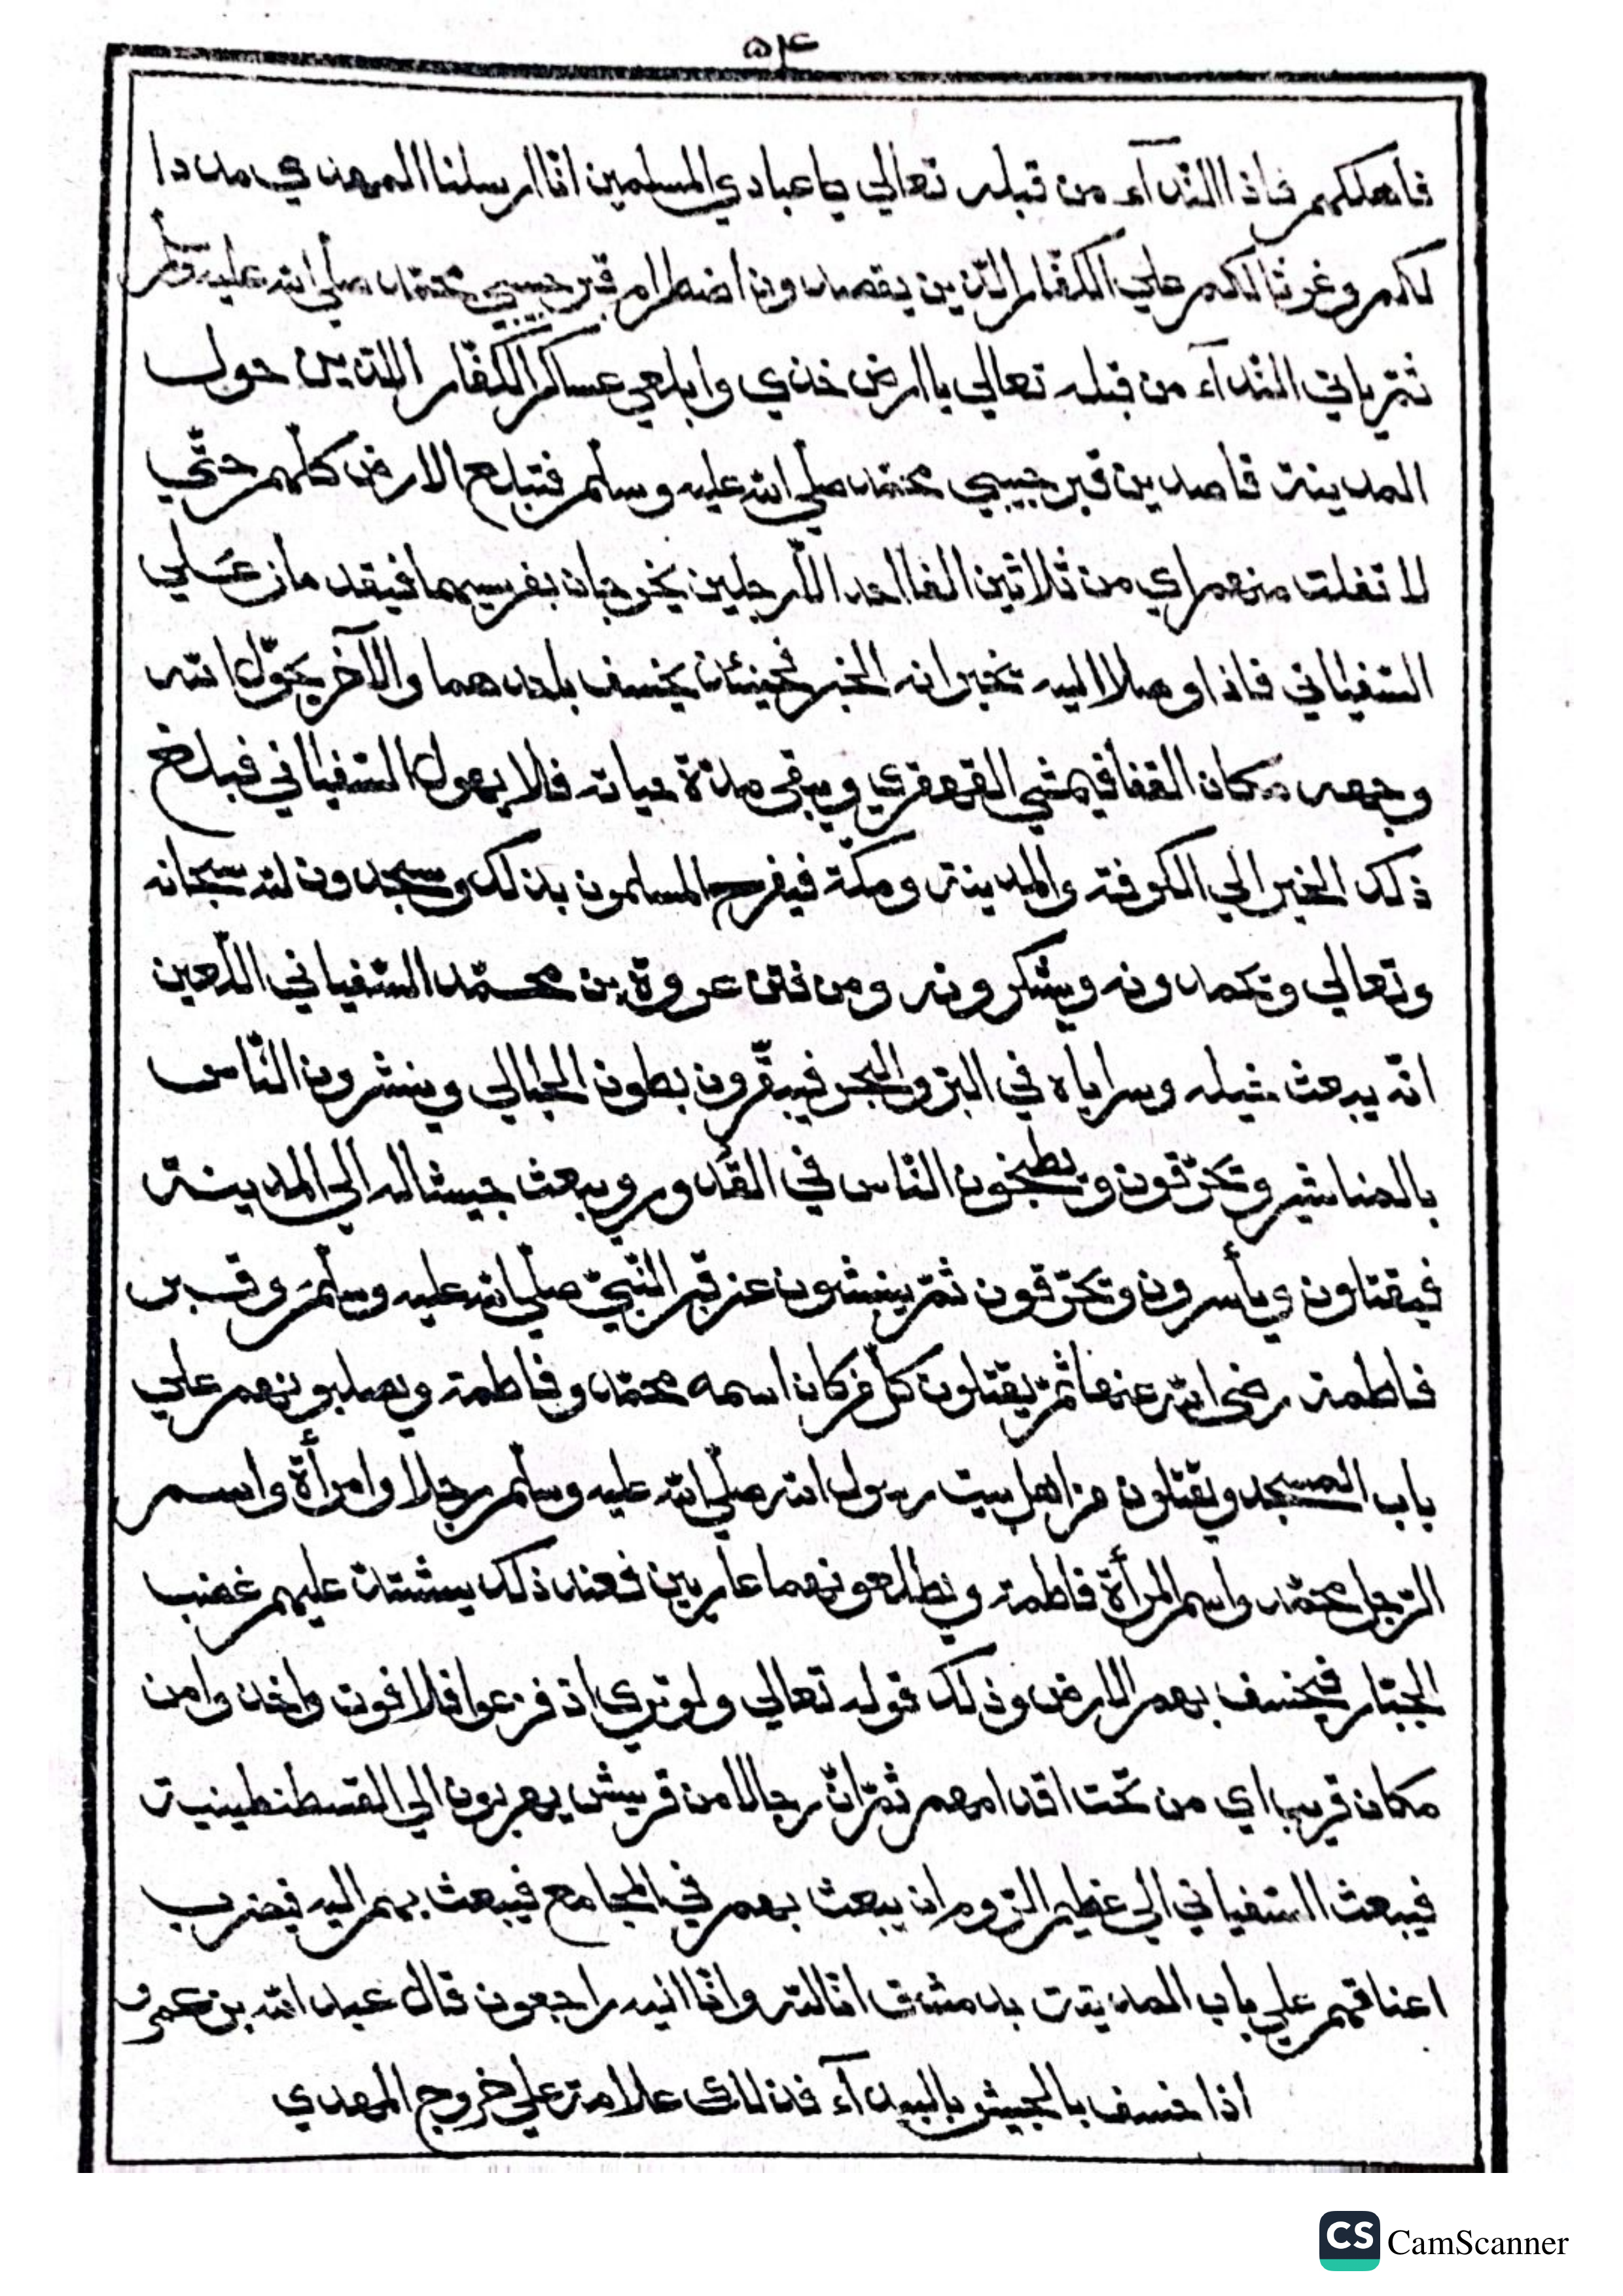 ٥٤
فاهلكهم فاذا النّدآء من قبله تعالي يا عبادي المسلمين انّا ارسلنا المهدي مددا
لكم وغوثا لكم علي الكفّار الّذين يقصدون اضطرام قبر حبيبي محمّد صلّي الله عليه وسلّم
ثمّ ياتي النّدآء من قبله تعالي يا ارض خذي وابلعي عساكر الكفّار الّذين حول
المدينة قاصدين قبر حبيبي محمّد صلّي الله عليه وسلّم فتبلع الارض كلّهم حتّي
لا تفلت منهم اي من ثلاثين الفا احد الّا رجلين يخرجان بفرسيهما
السّفياني فاذا وصلا اليه تخبرانه الخبر فحينئذ يخسف باحدهما والآخر يحوّل الله
وجهه مكان القفا فيمشي القهقري ويبقي مدّة حياته فلا يهول السّفياني فبلغ
ذلك الخبر الي الكوفة والمدينة ومكّة فيفرح المسلمون بذلك وسجدون لله سبحانه
وتعالي وتحمدونه ويشكرونه ومن فتن عروة بن محمّد السّفياني اللّعين
انّه يبعث خيله وسراياه في البرّ والبحر فيبقّرون بطون الحبالي وينشرون النّاس
بالمناشير وتحرّقون ويطبخون النّاس في القدور ويبعث جيشا له الي المدينة
فيقتلون ويأسرون وتحرّقون ثمّ ينبشون عن قبر النّبيّ صلّي الله عليه وسلّم وقبر
فاطمة رضي الله عنها ثمّ يقتلون كلّ من كان اسمه محمّد وفاطمة ويصلبونهم علي
باب المسجد ويقتلون من اهل بيت رسول الله صلّي الله عليه وسلّم رجلا وامرأة واسم
الرّجل محمّد واسم المرأة فاطمة ويطلعونهما عاريين فعند ذلك يشتدّ عليهم غضب
الجبّار فيخسف بهم الارض وذلك قوله تعالي ولو تري اذ فزعوا فلا فوت واخذوا من
مكان قريب اي من تحت اقدامهم ثمّ انّ رجالا من قريش يهربون الي القسطنطينية
فيبعث السّفياني الي عظيم الرّوم ان يبعث بهم في المجامع فيبعث بهم اليه فيضرب
اعناقهم علي باب المدينة بدمشق انّا لله وانّا اليه راجعون قال عبد الله بن عمرو
اذا خسف بالجيش بالبيدآء فذلك علامة علي خروج المهدي
CS CamScanner